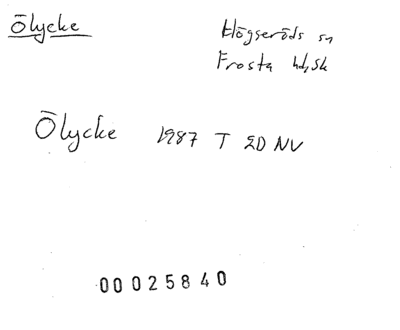 Ölycke
Högseröds sn
Frosta hd, Sk
Ölycke 1987 T 2D NV
00025840